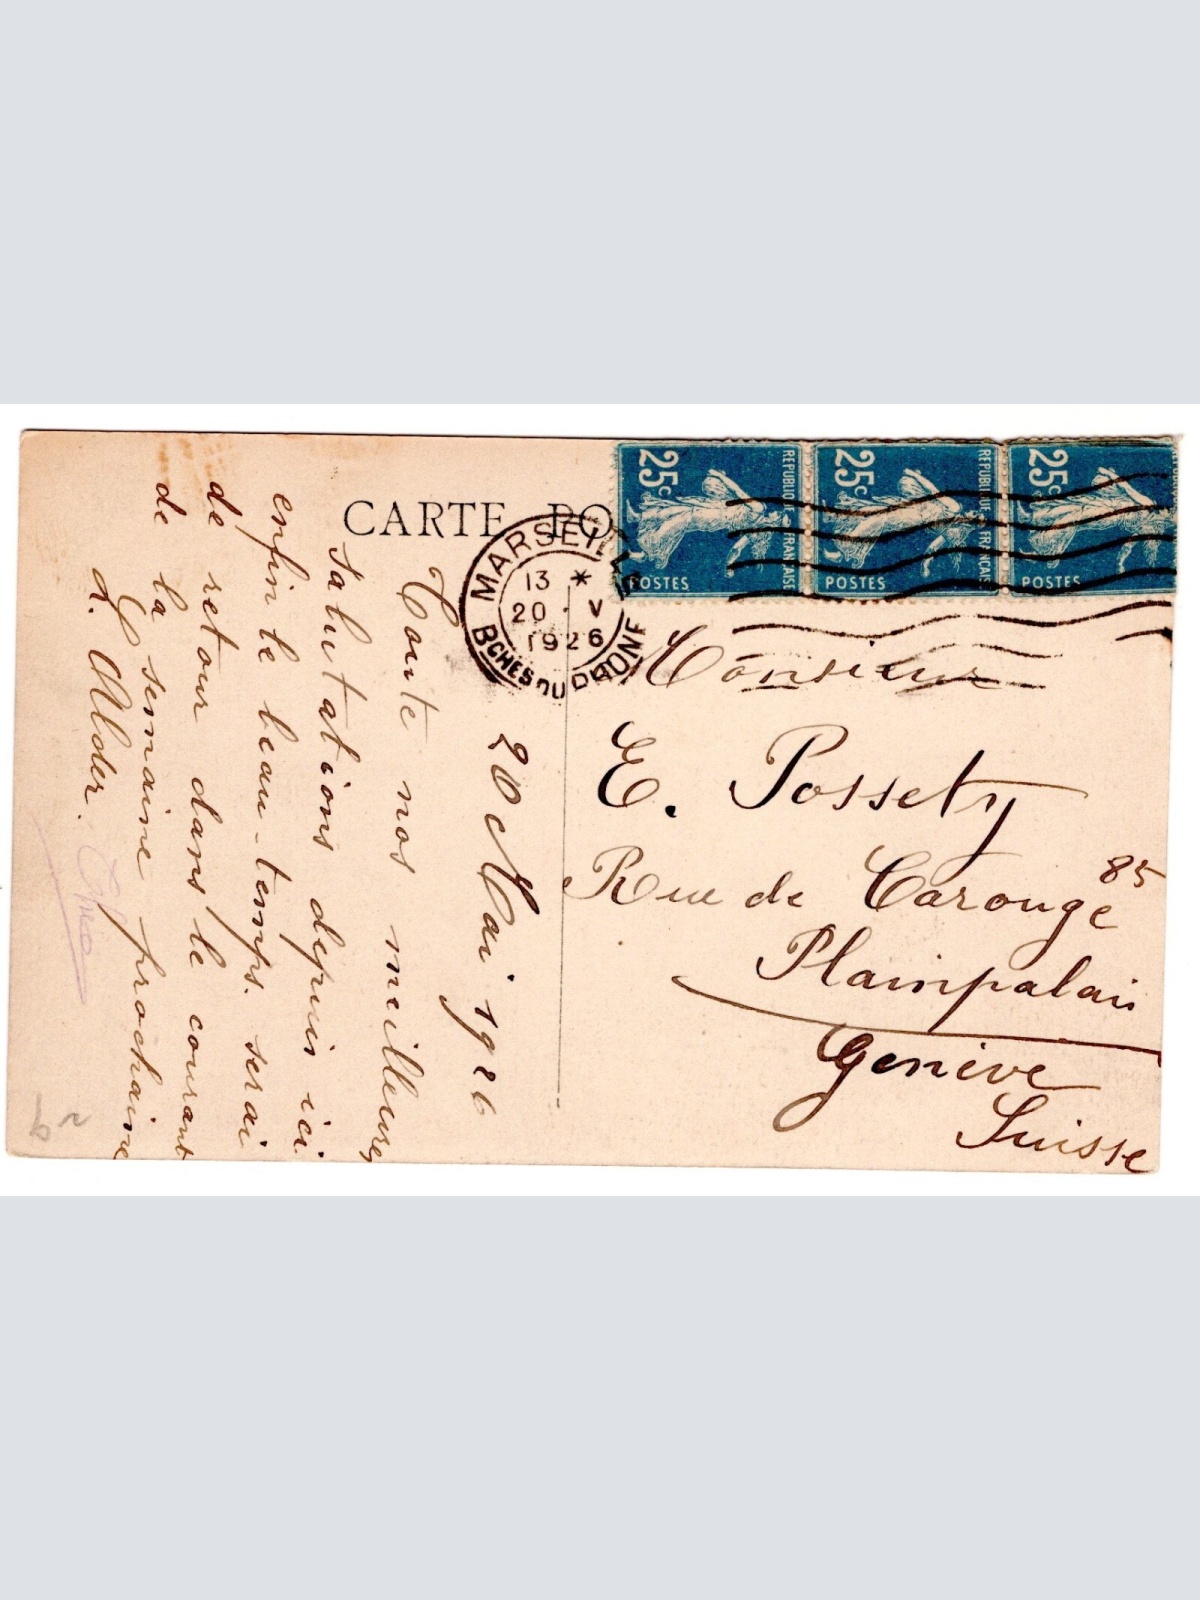 CARTE PO
MARSEILLE
13 *
20 V
1926
BCHES DU RHONE
25c
REPUBLIQUE FRANCAISE
POSTES
25c
REPUBLIQUE FRANCAISE
POSTES
25c
POSTES
20 Mai 1926
Toute nos meilleures
salutations depuis ici
enfin le beau-temps. serai
de retour dans le courant
de la semaine prochaine
Alder.
Monsieur
E. Possety
Rue de Carouge 85
Plainpalais
Genève
Suisse